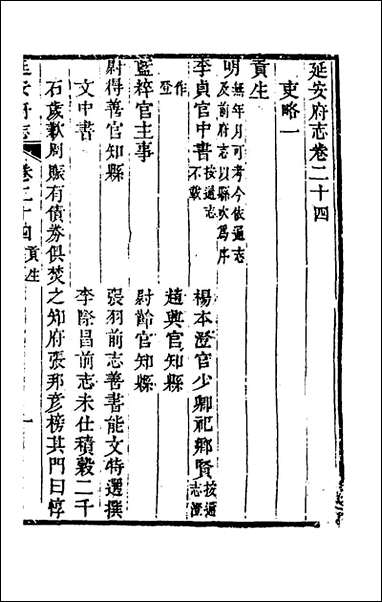 延安府志卷二十四
吏略一
貢生
明無年月可考今依通志及前府志以縣次爲序
李貞官中書按通志不載
楊本澄官少卿祀鄉賢按通志澄
作
趙興官知縣
藍粹官主事
尉齡官知縣
尉得善官知縣
張羽前志善書能文特選撰
文中書
李際昌前志未仕積穀二千
石歲歉周賑有債券俱焚之知府張邦彥榜其門曰惇
延安府志
卷二十四 貢生
一